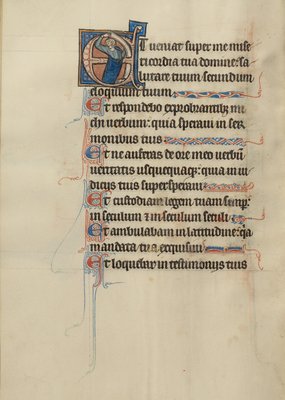 Et ueniat super me mise
ricordia tua domine: sa
lutare tuum secundum
eloquium tuum.
Et respondebo exprobrantibus mi
chi uerbum: quia speraui in ser
monibus tuis
Et ne auferas de ore meo uerbū
ueritatis usquequaqꝫ: quia in iu
diciis tuis supersperaui
Et custodiam legem tuam semꝑ:
in seculum ⁊ in seculum seculi
Et ambulabam in latitudine: q̇a
mandata tua exquisiui
Et loquebar in testimonijs tuis